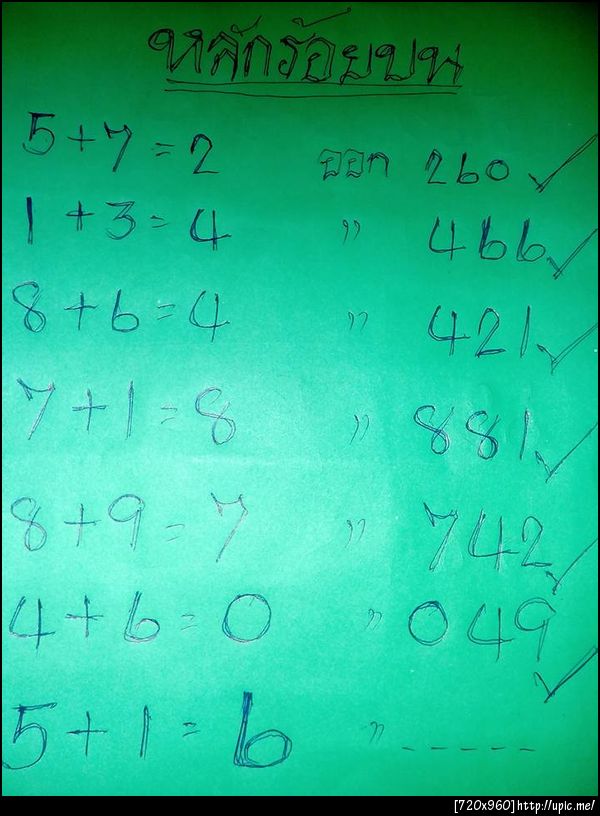 หลักร้อยบน
5+7=2 ออก 260 ✓
1+3=4 " 466 ✓
8+6=4 " 421 ✓
7+1=8 " 881 ✓
8+9=7 " 742 ✓
4+6=0 " 049 ✓
5+1=6 " -----
[720x960]http://upic.me/